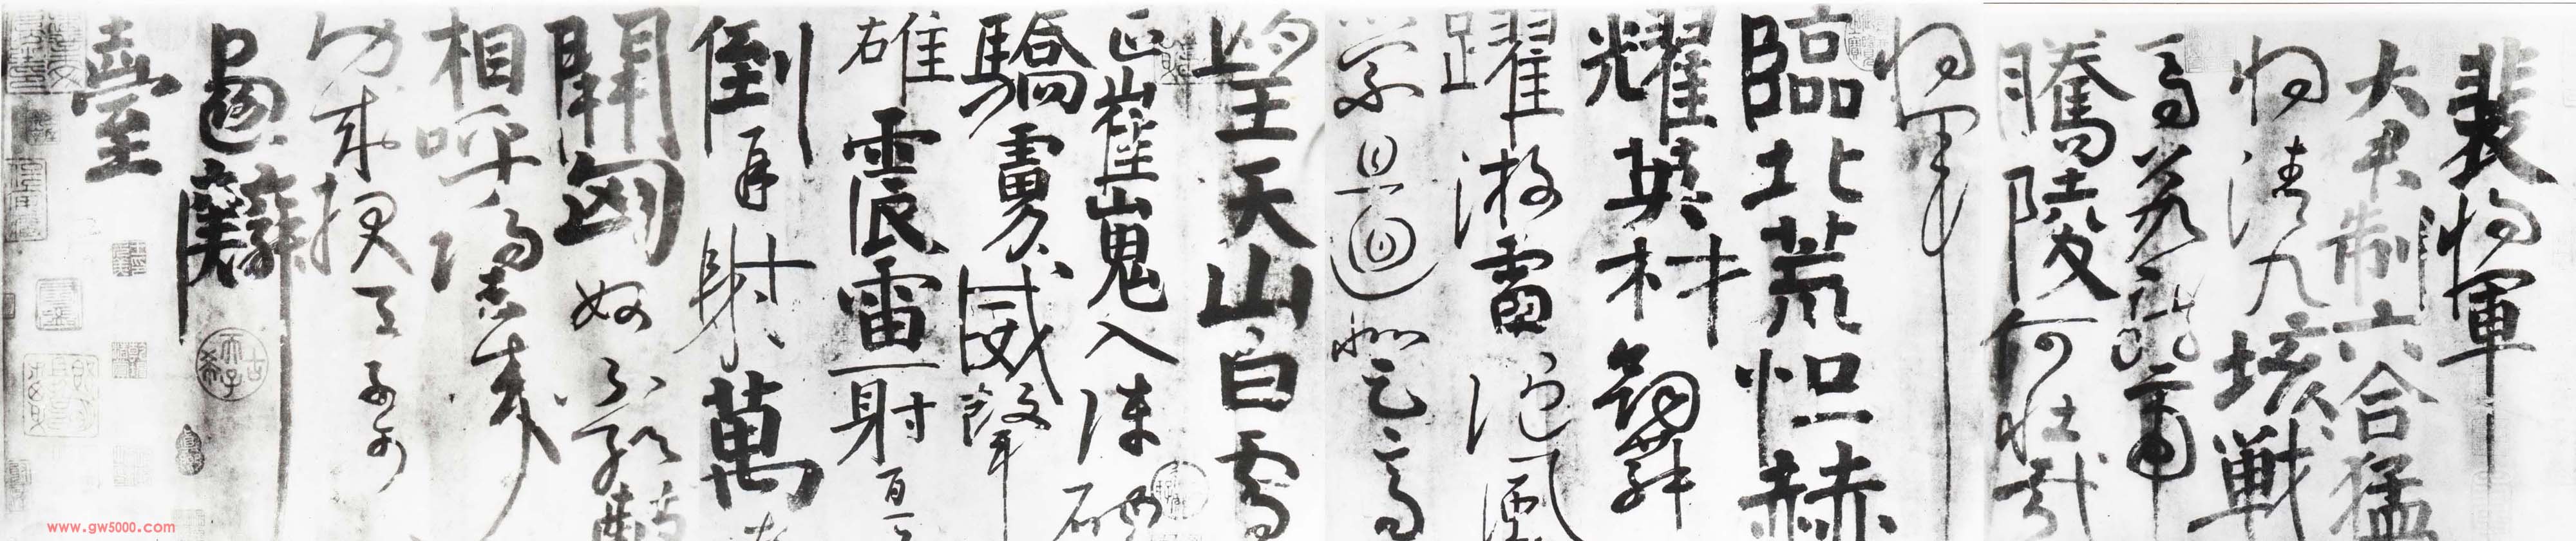 裴將軍
大君制六合猛
將清九垓戰
馬若龍虎
騰陵何壯哉
將軍
臨北荒恒赫
耀英材劍舞
躍游雷隨風
縈且迴登高
望天山白雪
正崔嵬入陣破
驕虜威聲
雄震雷一射百馬
倒再射萬夫
開匈奴不敢敵
相呼歸去來
功成報天子可
畫麟
臺
古希天子
www.gw5000.com